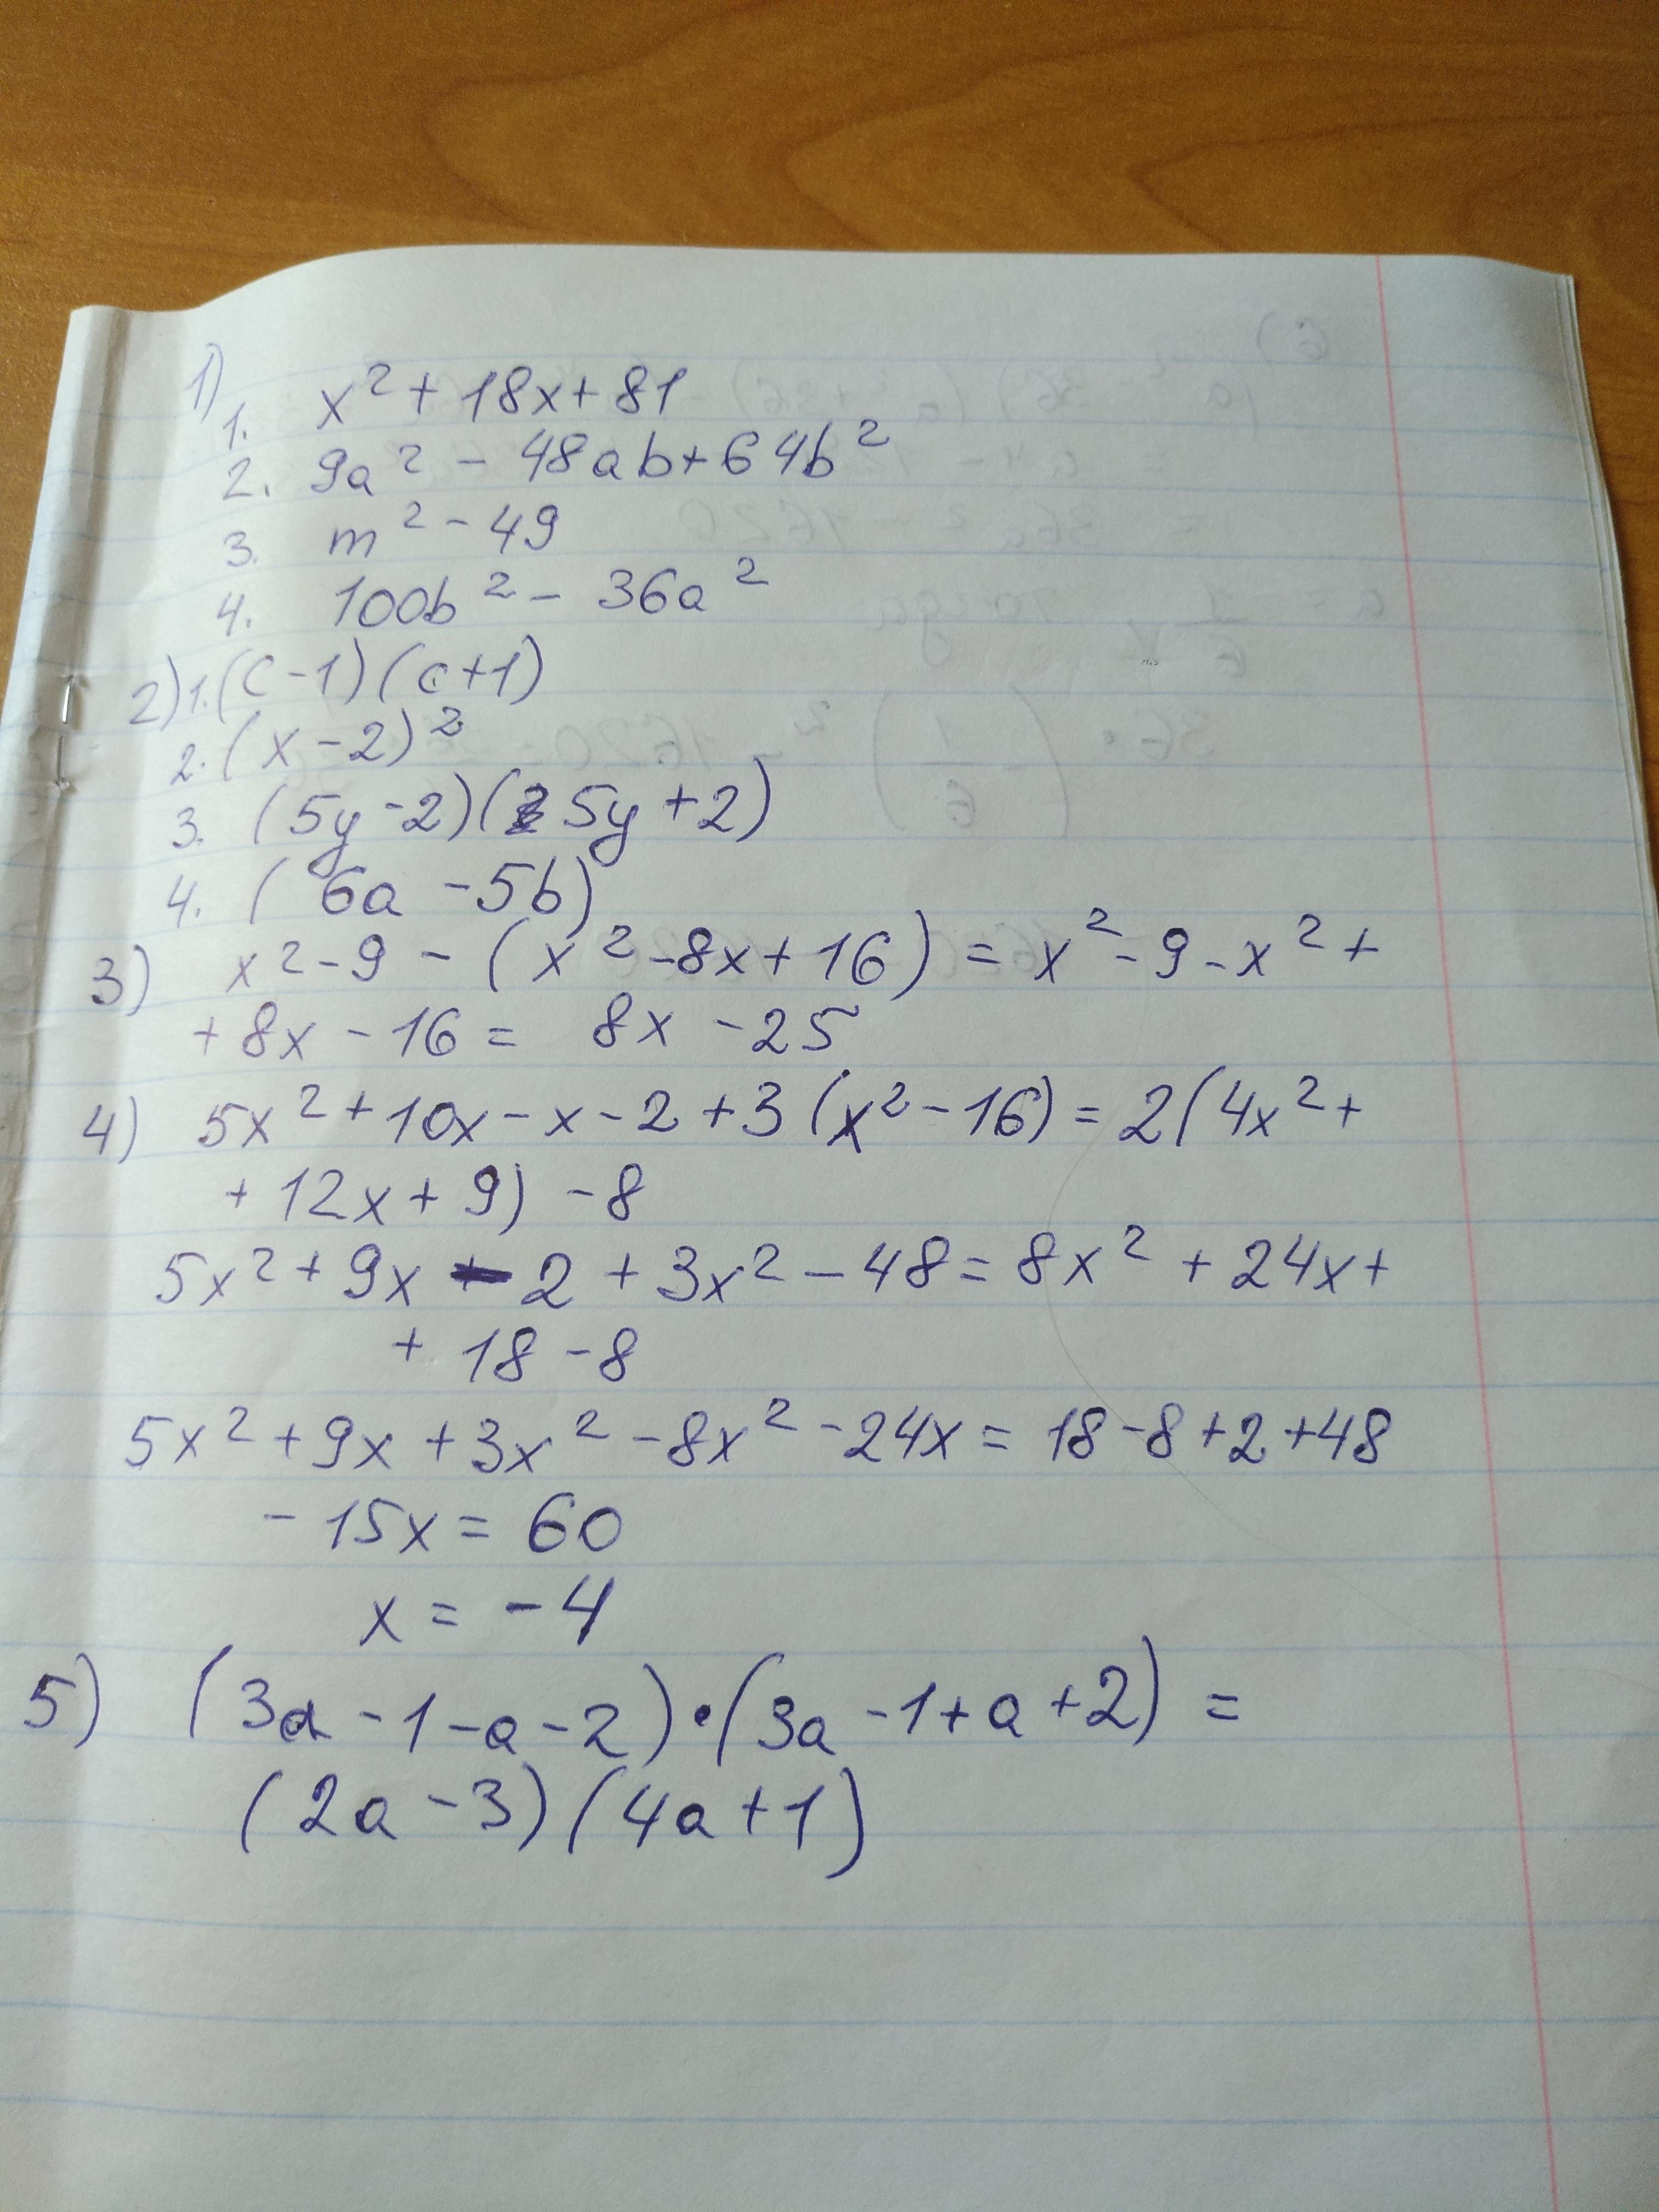 1)
1. x² + 18x + 81
2. 9a² - 48ab + 64b²
3. m² - 49
4. 100b² - 36a²
2) 1. (c - 1)(c + 1)
2. (x - 2)²
3. (5y - 2)(5y + 2)
4. (6a - 5b)
3) x² - 9 - (x² - 8x + 16) = x² - 9 - x² +
+ 8x - 16 = 8x - 25
4) 5x² + 10x - x - 2 + 3(x² - 16) = 2(4x² +
+ 12x + 9) - 8
5x² + 9x - 2 + 3x² - 48 = 8x² + 24x +
+ 18 - 8
5x² + 9x + 3x² - 8x² - 24x = 18 - 8 + 2 + 48
- 15x = 60
x = - 4
5) (3a - 1 - a - 2) · (3a - 1 + a + 2) =
(2a - 3)(4a + 1)